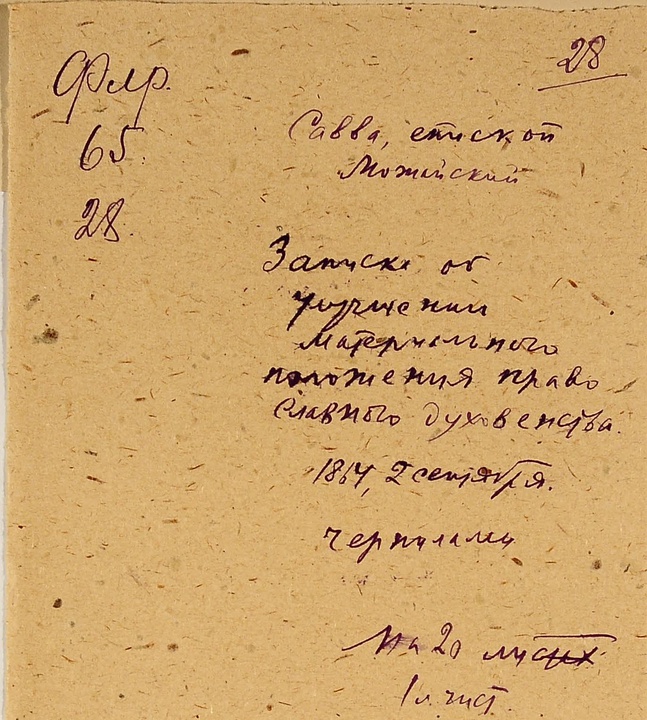 Флр.
65.
28.
28
Савва, епископ
Можайский
Записка об
улучшении
материального
положения право
славного духовенства.
1864, 2 сентября.
Чернилами
На 20 листах
1 л. чист.